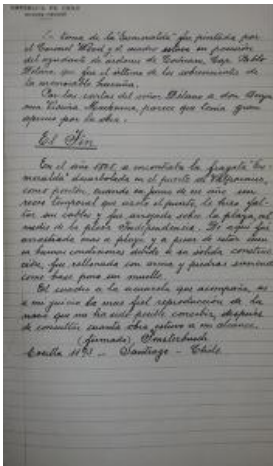 REPÚBLICA DE CHILE
La toma de la "Esmeralda" fue pintada por
el Coronel Wood y el cuadro estuvo en posesión
del ayudante de órdenes de Cochrane, Cap. Pablo
Délano, que fue el último de los sobrevivientes de
la memorable hazaña.
Por las cartas del señor Délano a don Benja
min Vicuña Mackenna, parece que tenía gran
aprecio por la obra.
El Fin
En el año 1825, se encontraba la fragata "Es
meralda" desarbolada en el puerto de Valparaíso,
como pontón, cuando en junio de ese año un
recio temporal que azotó el puerto, le hizo fal-
tar sus cables y fue arrojada sobre la playa, al
medio de la plaza Independencia. De aquí fue
arrastrada mas a playa y a pesar de estar aun
en buenas condiciones debido a su sólida construc
ción, fue rellenada con arena y piedras sirviendo
como base para un muelle.
El cuadro a la acuarela que acompaña, es
a mi juicio la mas fiel reproducción de la
nave que me ha sido posible concebir, después
de consultar cuanta obra estuvo a mi alcance.
(firmado),
Casilla Santiago - Chile.